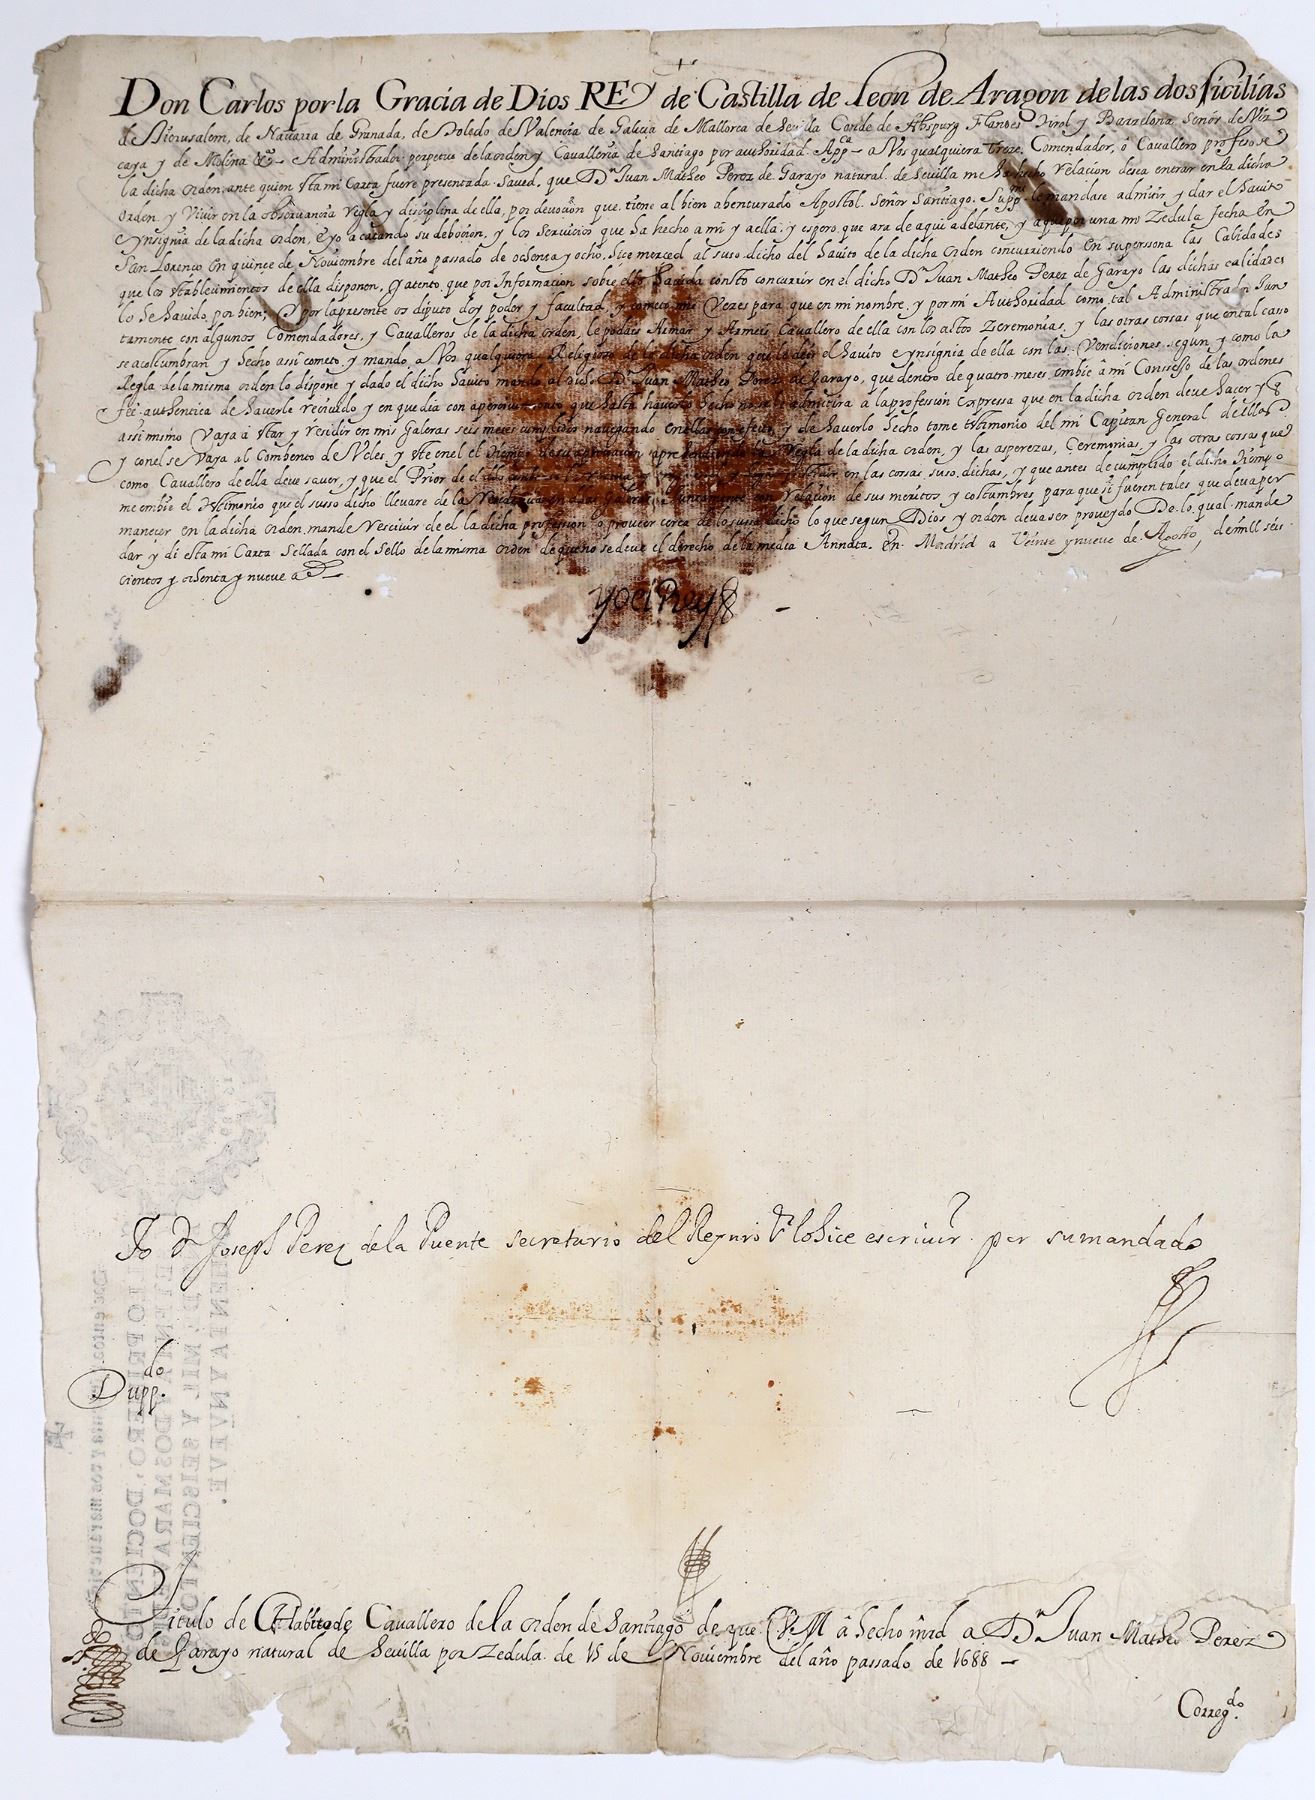 Don Carlos por la Gracia de Dios REy de Castilla de Leon de Aragon de las dos sicilias
de Hierusalem, de Navarra de Granada, de Toledo de Valencia de Galicia de Mallorca de Sevilla Conde de Abspurg Flandes Tirol y Barzelona Señor de Viz
caya y de Molina &a Administrador perpetuo de la orden y Cavalleria de Santiago por authoridad Appca a Vos qualquiera Treze, Comendador, ó Cavallero profeso de
la dicha orden, ante quien esta mi Carta fuere presentada. Saved, que Dn Juan Matheo Perez de Garayo natural de Sevilla me ha hecho relacion desea entrar en la dicha
orden y Vivir en la observancia regla y disciplina de ella, por devocion que tiene al bien abenturado Apostol señor Santiago. Suppme le mandase admitir y dar el havito
e ynsignia de la dicha orden, e yo acatando su debocion, y los servicios que ha hecho a mi y a ella, y espero que ara de aqui adelante, y a que por una mi Zedula fecha en
San Lorenço en quince de Noviembre del año passado de ochenta y ocho, hice merced al suso dicho del havito de la dicha orden concurriendo en su perssona las Calidades
que los establecimientos de ella disponen, Y atento, que por Informacion sobre ello havida consto concurrir en el dicho Dn Juan Matheo Perez de Garayo las dichas calidades
lo he havido por bien; Y por la presente os diputo doy poder y facultad, y cometo mis Vezes para que en mi nombre, y por mi Authoridad como tal Administrador Jun
tamente con algunos Comendadores, y Cavalleros de la dicha orden, le podais Armar y Armeis Cavallero de ella con los actos Zeremonias, y las otras cossas que en tal caso
se acostumbran y hecho assi cometo, y mando, a Vos qualquiera Religioso de la dicha orden que le deis el havito e ynsignia de ella con las Vendiciones segun y como la
Regla de la misma orden lo dispone y dado el dicho havito mando al dicho Dn Juan Matheo Perez de Garayo, que dentro de quatro meses embie â mi Conssejo de las ordenes
feé authentica de haverle recivido y en que dia con apercivimiento que hasta haverlo hecho no se le admitira a la profession expressa que en la dicha orden deve hacer y
assi mismo Vaya á estar y residir en mis Galeras seis meses cumplidos navegando en ellas con efecto, y de haverlo hecho tome testimonio del mi Capitan General de ellas
y con el se Vaya al Combento de Ucles, y este en el el tiempo de su aprovacion aprendiendo la Regla de la dicha orden, y las asperezas, Ceremonias, y las otras cossas que
como Cavallero de ella deve saver, y que el Prior de el en las cossas suso dichas, y que antes de cumplido el dicho tiempo
me embie el testimonio que el susso dicho llevare de la residencia en las Galeras, Juntamente con relacion de sus meritos, y costumbres para que si fueren tales que deva per
manecer en la dicha orden mande resciuir de el la dicha profession, ó proveer cerca de lo susso dicho lo que segun Dios, y orden deva ser proveydo De lo qual mande
dar y di esta mi Carta Sellada con el Sello de la misma orden de que no se deve el derecho de la media Annata. En Madrid a Veinte y nueve de Agosto, de mill seis
cientos y ochenta y nueve as
Yo el Rey
Yo Dn Joseph Perez de la Puente secretario del Rey nro sr lo hice escrivir por su mandado
Duppdo
Titulo de Habito de Cavallero de la orden de Santiago de que V.M â hecho mrd a Dn Juan Matheo Perez
de Garayo natural de Sevilla por Zedula de 15 de Noviembre del año passado de 1688
Corregdo.